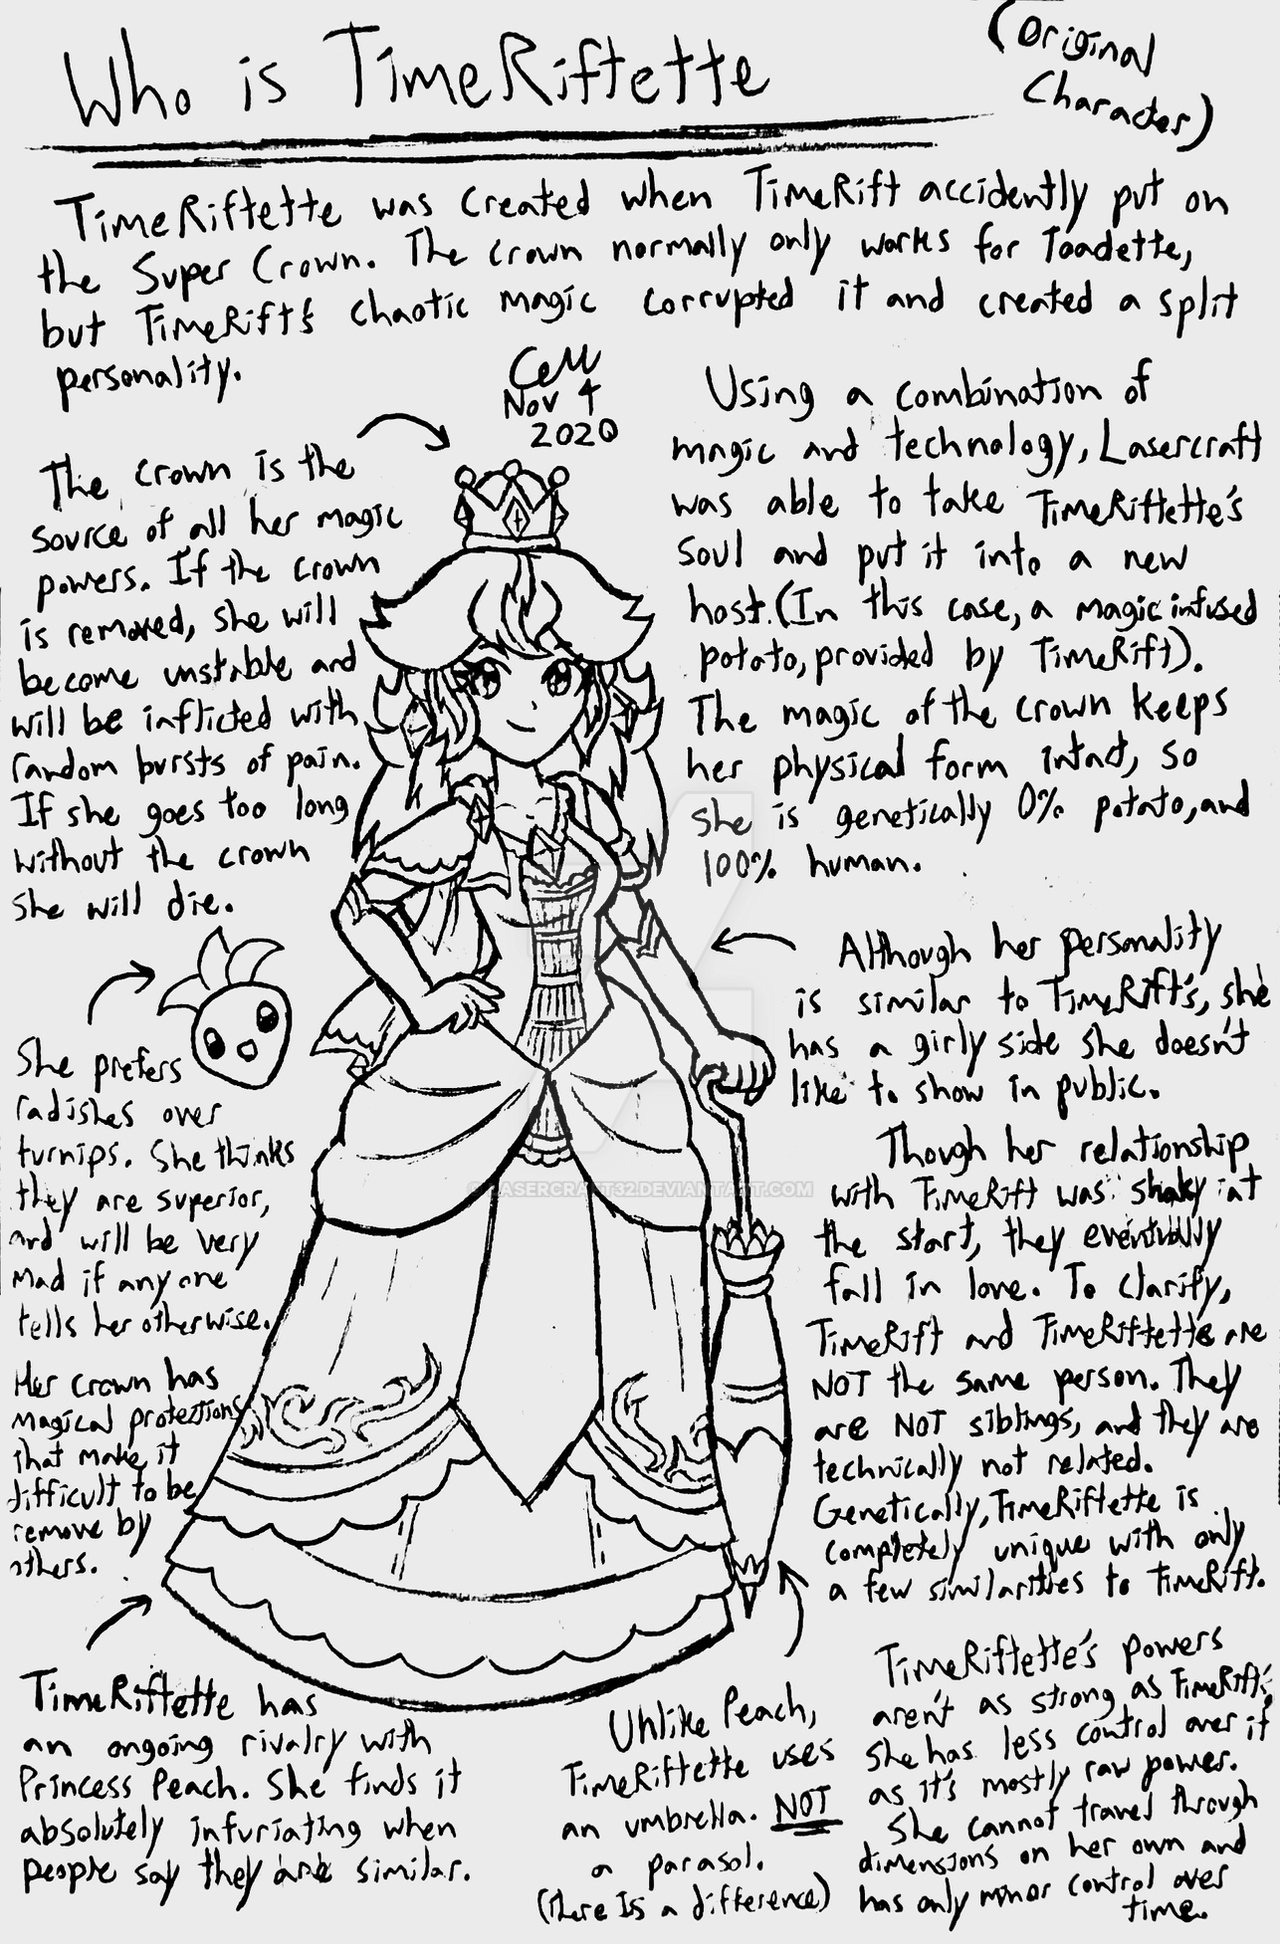 Who is TimeRiftette
(Original
Character)
TimeRiftette was created when TimeRift accidently put on
the Super Crown. The crown normally only works for Toadette,
but TimeRift's chaotic magic corrupted it and created a split
personality.
Cell
Nov 4
2020
The crown is the
source of all her magic
powers. If the crown
is removed, she will
become unstable and
will be inflicted with
random bursts of pain.
If she goes too long
without the crown
she will die.
She prefers
radishes over
turnips. She thinks
they are superior,
and will be very
mad if anyone
tells her otherwise.
Her crown has
magical protections
that make it
difficult to be
remove by
others.
TimeRiftette has
an ongoing rivalry with
Princess Peach. She finds it
absolutely infuriating when
people say they are similar.
Using a combination of
magic and technology, Lasercraft
was able to take TimeRiftette's
soul and put it into a new
host. (In this case, a magic infused
potato, provided by TimeRift).
The magic of the crown keeps
her physical form intact, so
she is genetically 0% potato, and
100% human.
Although her personality
is similar to TimeRift's, she
has a girly side she doesn't
like to show in public.
Though her relationship
with TimeRift was shaky at
the start, they eventually
fall in love. To clarify,
TimeRift and TimeRiftette are
NOT the same person. They
are NOT siblings, and they are
technically not related.
Genetically, TimeRiftette is
completely unique with only
a few similarities to TimeRift.
Unlike Peach,
TimeRiftette uses
an umbrella. NOT
a parasol.
(There Is a difference)
TimeRiftette's powers
aren't as strong as TimeRift's.
She has less control over it
as it's mostly raw power.
She cannot travel through
dimensions on her own and
has only minor control over
time.
©LASERCRAFT32.DEVIANTART.COM